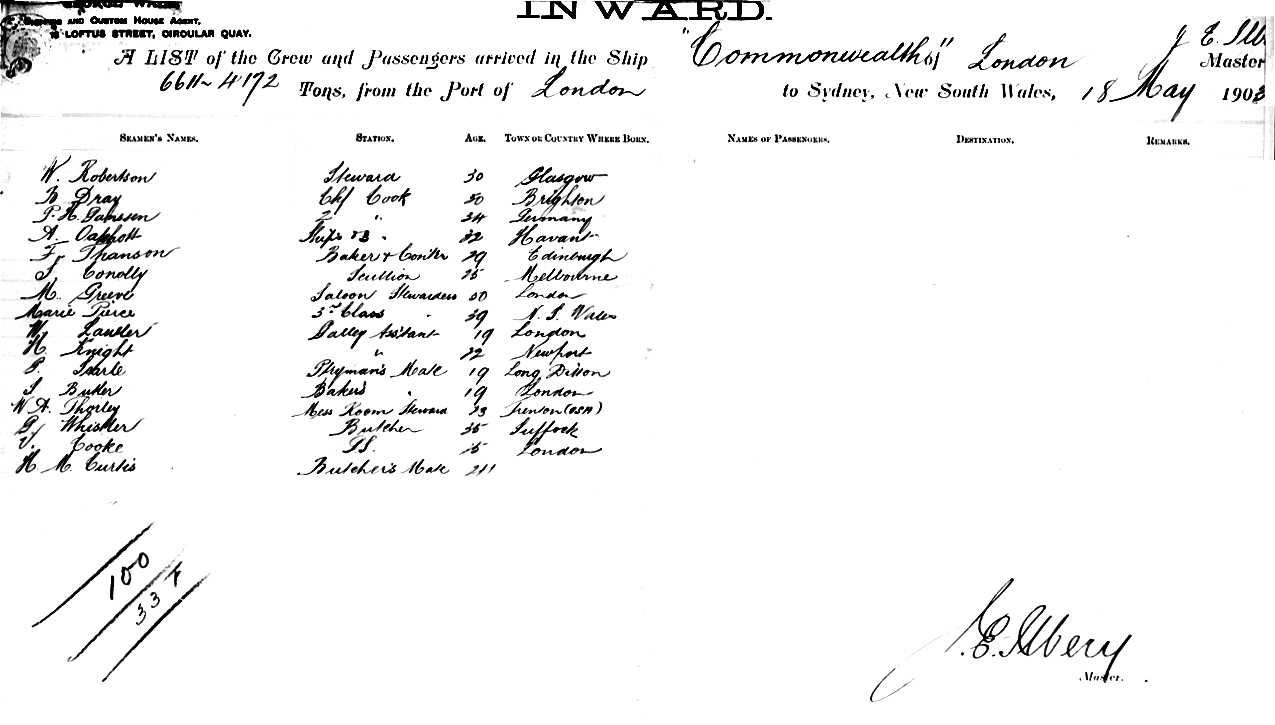 INWARD.
AND CUSTOM HOUSE AGENT,
LOFTUS STREET, CIRCULAR QUAY.
A LIST of the Crew and Passengers arrived in the Ship "Commonwealth" of London J E Master
6611 - 4172 Tons, from the Port of London to Sydney, New South Wales, 18 May 190
SEAMEN'S NAMES. STATION. AGE. TOWN OR COUNTRY WHERE BORN. NAMES OF PASSENGERS. DESTINATION. REMARKS.
W. Robertson Steward 30 Glasgow
Dray Chf Cook Brighton
P. H. 2 " 34 Germany
A. Ships 32 Havant
F. Baker & 29 Edinburgh
Conolly Scullion 25 Melbourne
M. Greeve Saloon Stewardess London
Marie Pierce 3rd Class " 39 N. S. Wales
W. Lawler Galley Assistant 19 London
H. Knight " 22 Newport
Searle Mate 19 Long Ditton
Butler Baker's " 19 London
W A. Thorley Mess Room Steward 23 Trenton (USA)
G. Whistler Butcher 35 Suffock
V. Cooke London
H. M. Curtis Butcher's Mate
100
33
J. E. Ilbery
Master.